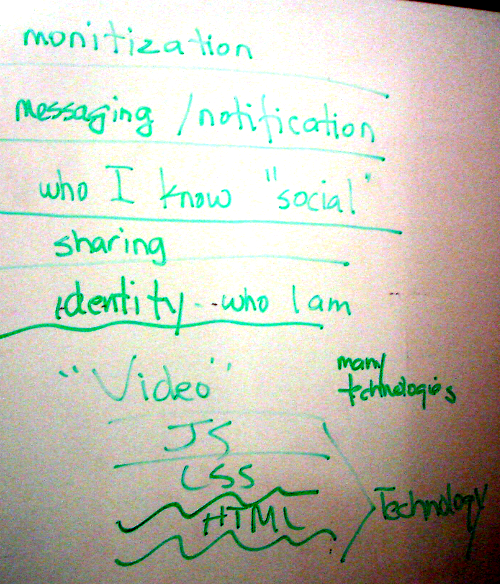 monitization
messaging / notification
who I know "social"
sharing
identity.. who I am
"Video"
many
technologies
JS
CSS
HTML
Technology